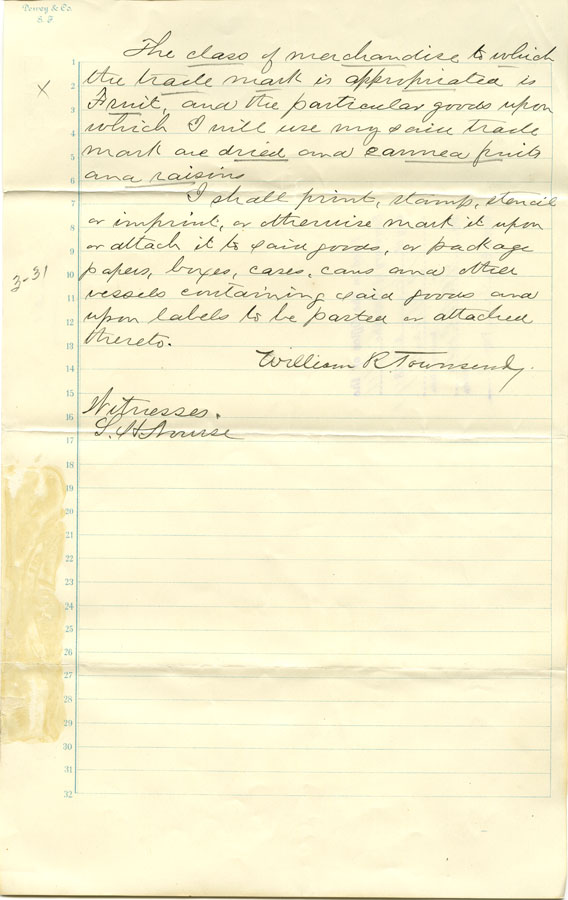 Dewey & Co.
S. F.
The class of merchandise to which
the trade mark is appropriated is
Fruit, and the particular goods upon
which I will use my said trade
mark are dried and canned fruits
and raisins
I shall print, stamp, stencil
or imprint, or otherwise mark it upon
or attach it to said goods, or package
papers, boxes, cases, cans and other
vessels containing said goods and
upon labels to be pasted or attached
thereto.
William R Townsend
Witnesses.
S. H. Nourse
X
3-31
1
2
3
4
5
6
7
8
9
10
11
12
13
14
15
16
17
18
19
20
21
22
23
24
25
26
27
28
29
30
31
32